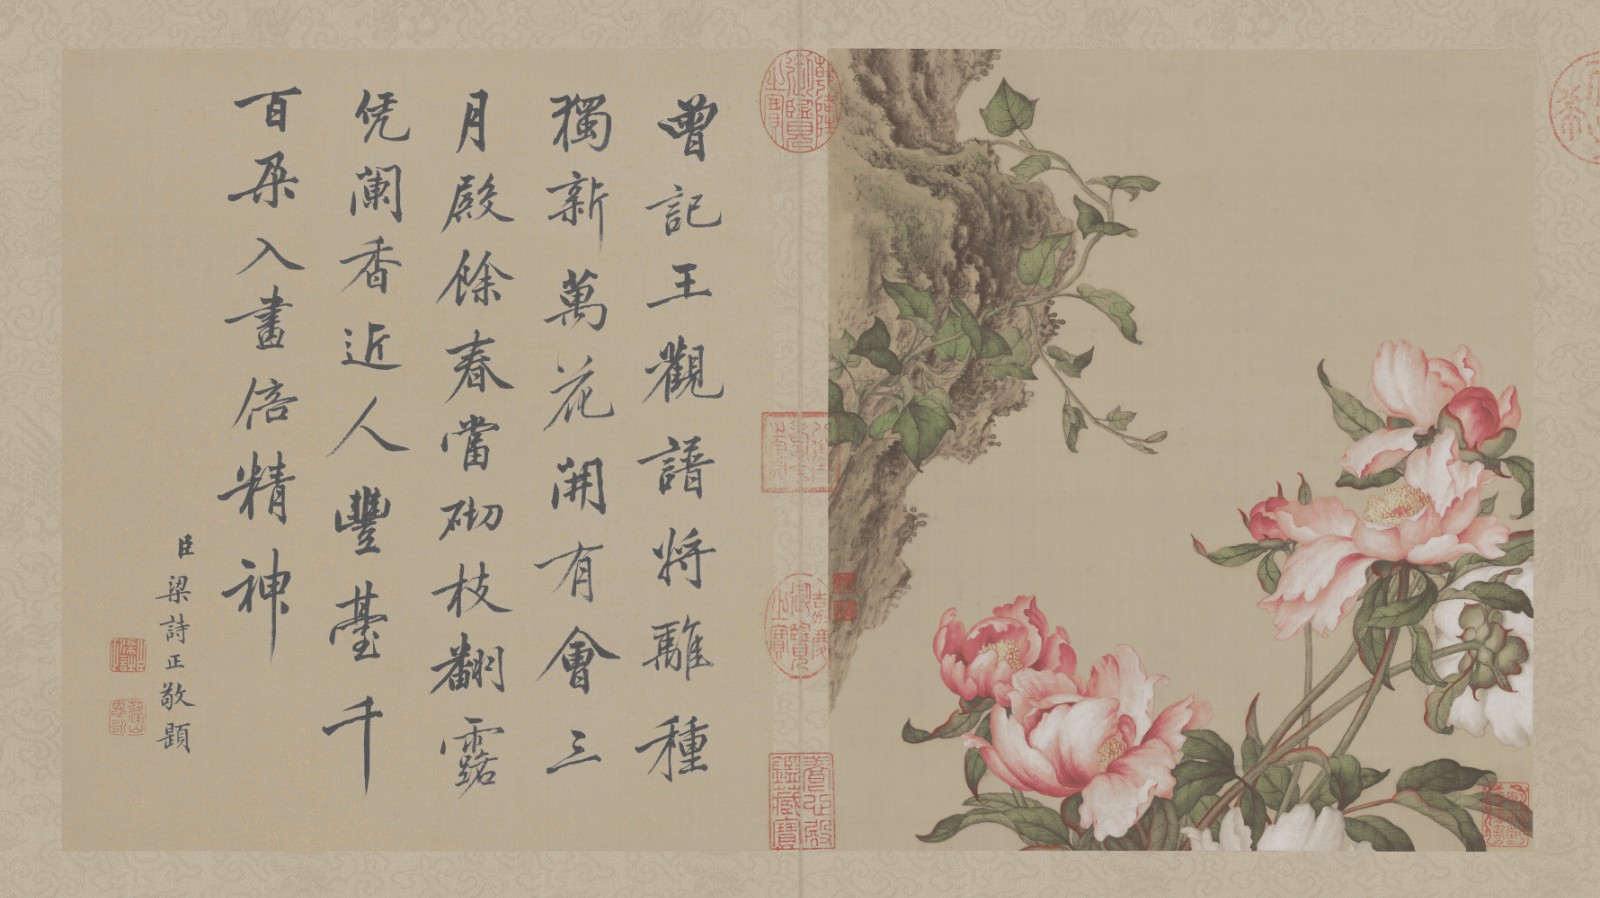 曾記王觀譜將離種
獨新萬花開有會三
月殿餘春當砌枝翻露
凭闌香近人豐臺千
百朶入畫倍精神
臣梁詩正敬題
養心殿鑑藏寶